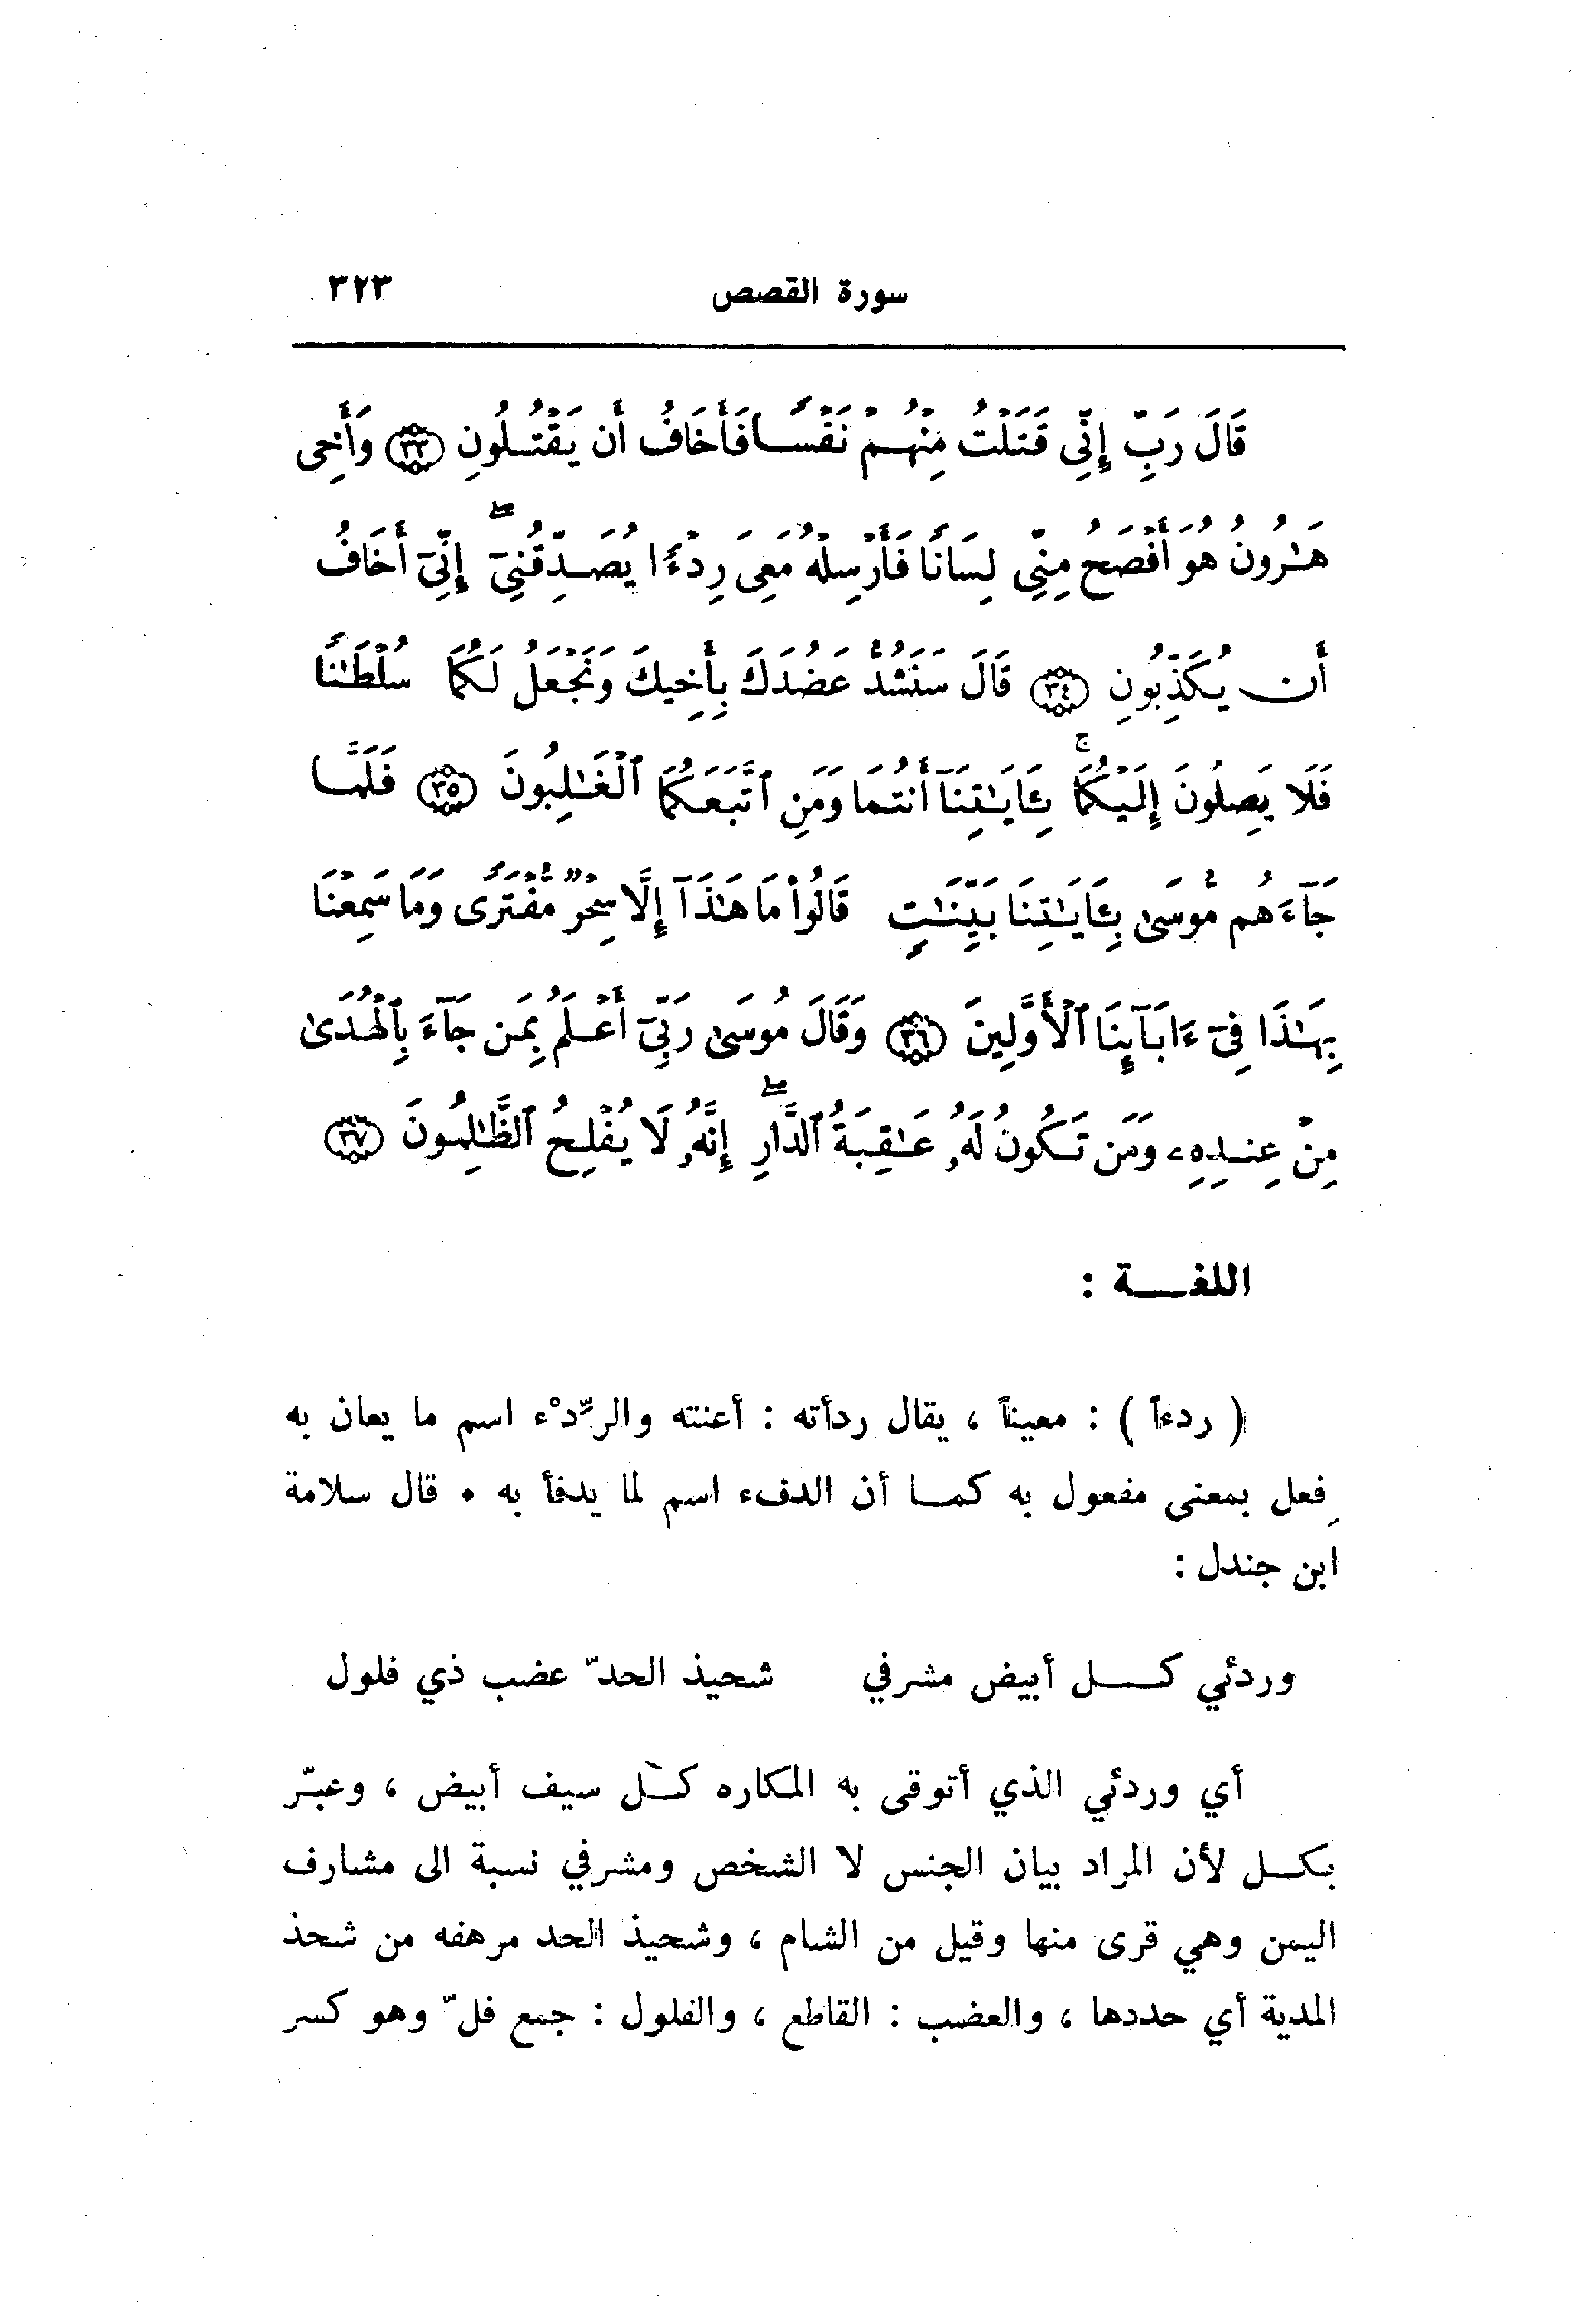 سورة القصص ٣٢٣
قَالَ رَبِّ إِنِّي قَتَلْتُ مِنْهُمْ نَفْسًا فَأَخَافُ أَن يَقْتُلُونِ ﴿٣٣﴾ وَأَخِى
هَـٰرُونُ هُوَ أَفْصَحُ مِنِّى لِسَانًا فَأَرْسِلْهُ مَعِىَ رِدْءًا يُصَدِّقُنِىٓ ۖ إِنِّىٓ أَخَافُ
أَن يُكَذِّبُونِ ﴿٣٤﴾ قَالَ سَنَشُدُّ عَضُدَكَ بِأَخِيكَ وَنَجْعَلُ لَكُمَا سُلْطَـٰنًا
فَلَا يَصِلُونَ إِلَيْكُمَا ۚ بِـَٔايَـٰتِنَآ أَنتُمَا وَمَنِ ٱتَّبَعَكُمَا ٱلْغَـٰلِبُونَ ﴿٣٥﴾ فَلَمَّا
جَآءَهُم مُّوسَىٰ بِـَٔايَـٰتِنَا بَيِّنَـٰتٍ قَالُوا۟ مَا هَـٰذَآ إِلَّا سِحْرٌ مُّفْتَرًى وَمَا سَمِعْنَا
بِهَـٰذَا فِىٓ ءَابَآئِنَا ٱلْأَوَّلِينَ ﴿٣٦﴾ وَقَالَ مُوسَىٰ رَبِّىٓ أَعْلَمُ بِمَن جَآءَ بِٱلْهُدَىٰ
مِنْ عِندِهِۦ وَمَن تَكُونُ لَهُۥ عَـٰقِبَةُ ٱلدَّارِ ۖ إِنَّهُۥ لَا يُفْلِحُ ٱلظَّـٰلِمُونَ ﴿٣٧﴾
اللغـــة :
( ردءاً ) : معيناً ، يقال ردأته : أعنته والرِّدْء اسم ما يعان به
فِعل بمعنى مفعول به كمـا أن الدفء اسم لما يدفأ به . قال سلامة
ابن جندل :
وردئي كـــل أبيض مشرفي شحيذ الحدّ عضب ذي فلول
أي وردئي الذي أتوقى به المكاره كـَل سيف أبيض ، وعبّر
بكـل لأن المراد بيان الجنس لا الشخص ومشرفي نسبة الى مشارف
اليمن وهي قرى منها وقيل من الشام ، وشحيذ الحد مرهفه من شحذ
المدية أي حددها ، والعضب : القاطع ، والفلول : جمع فلّ وهو كسر